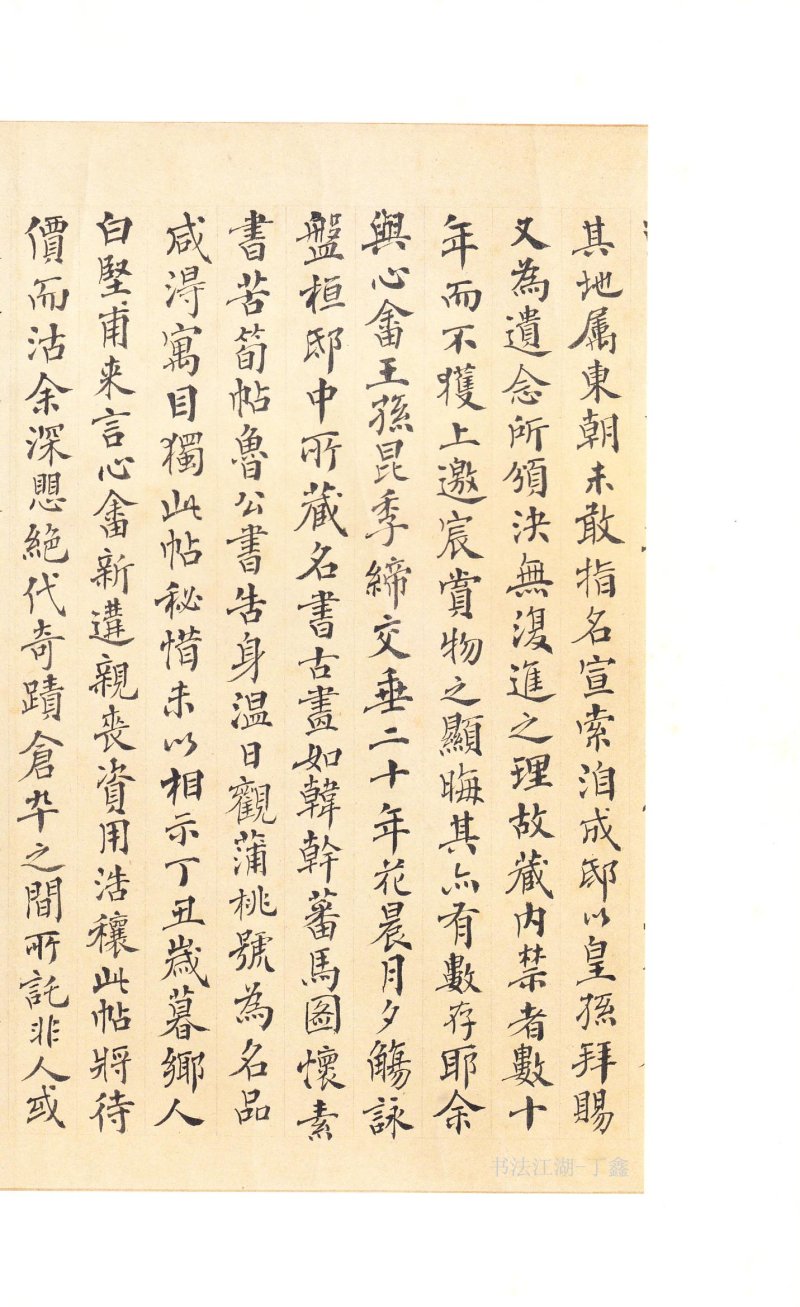 其地属東朝未敢指名宣索洎成邸以皇孫拜賜
又為遺念所頒決無復進之理故藏内禁者數十
年而不獲上邀宸賞物之顯晦其亦有數存耶余
與心畬王孫昆季締交垂二十年花晨月夕觴詠
盤桓邸中所藏名書古畫如韓幹蕃馬圖懷素
書苦筍帖魯公書告身温日觀蒲桃號為名品
咸得寓目獨此帖秘惜未以相示丁丑歲暮鄉人
白堅甫来言心畬新遘親喪資用浩穰此帖將待
價而沽余深愳絶代奇蹟倉卒之間所託非人或
书法江湖-丁鑫